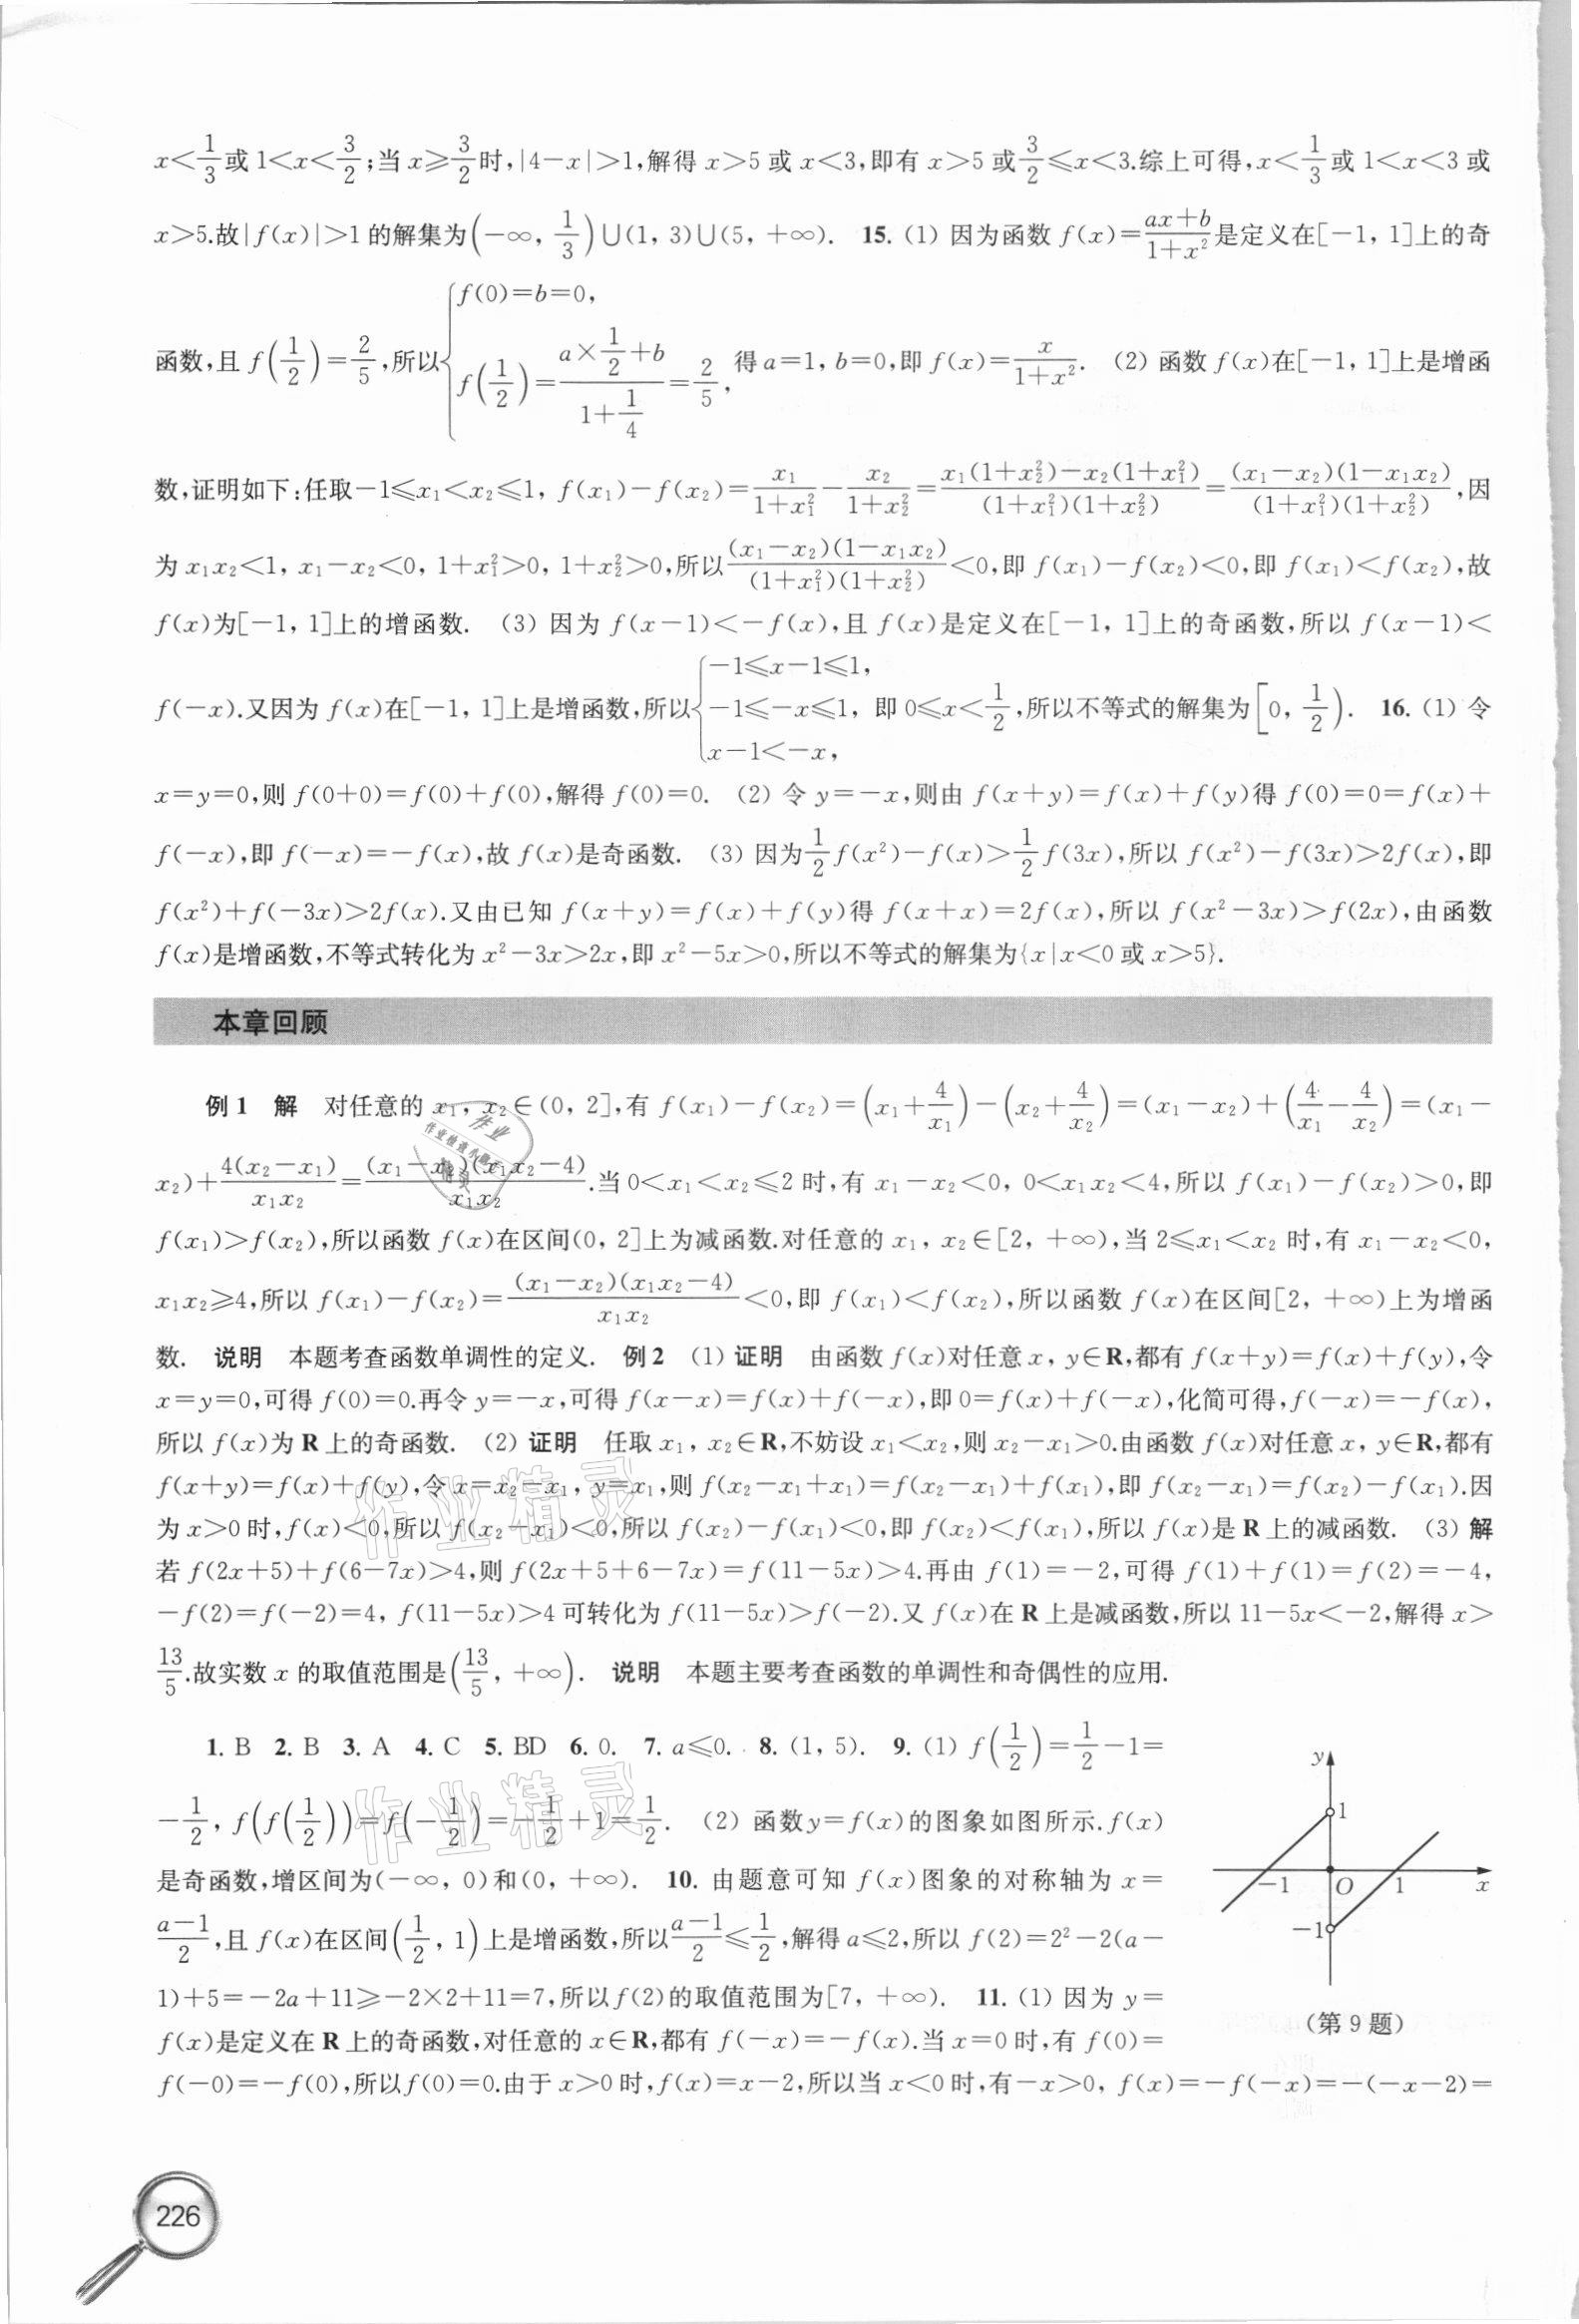 x<1/3或1<x<3/2;当x⩾3/2时,|4-x|>1,解得x>5或x<3,即有x>5或3/2⩽x<3.综上可得,x<1/3或1<x<3或
x>5.故|f(x)|>1的解集为(-∞, 1/3)∪(1, 3)∪(5, +∞). 15. (1) 因为函数f(x)=(ax+b)/(1+x²)是定义在[-1, 1]上的奇
函数,且f(1/2)=2/5,所以{f(0)=b=0, f(1/2)=(a×1/2+b)/(1+1/4)=2/5, 得a=1, b=0,即f(x)=x/(1+x²). (2) 函数f(x)在[-1, 1]上是增函
数,证明如下:任取-1⩽x₁<x₂⩽1, f(x₁)-f(x₂)=x₁/(1+x₁²)-x₂/(1+x₂²)=(x₁(1+x₂²)-x₂(1+x₁²))/((1+x₁²)(1+x₂²))=((x₁-x₂)(1-x₁x₂))/((1+x₁²)(1+x₂²)),因
为x₁x₂<1, x₁-x₂<0, 1+x₁²>0, 1+x₂²>0,所以((x₁-x₂)(1-x₁x₂))/((1+x₁²)(1+x₂²))<0,即f(x₁)-f(x₂)<0,即f(x₁)<f(x₂),故
f(x)为[-1, 1]上的增函数. (3) 因为f(x-1)<-f(x),且f(x)是定义在[-1, 1]上的奇函数,所以f(x-1)<
f(-x).又因为f(x)在[-1, 1]上是增函数,所以{-1⩽x-1⩽1, -1⩽-x⩽1, x-1<-x, 即0⩽x<1/2,所以不等式的解集为[0, 1/2). 16. (1) 令
x=y=0,则f(0+0)=f(0)+f(0),解得f(0)=0. (2) 令y=-x,则由f(x+y)=f(x)+f(y)得f(0)=0=f(x)+
f(-x),即f(-x)=-f(x),故f(x)是奇函数. (3) 因为1/2f(x²)-f(x)>1/2f(3x),所以f(x²)-f(3x)>2f(x),即
f(x²)+f(-3x)>2f(x).又由已知f(x+y)=f(x)+f(y)得f(x+x)=2f(x),所以f(x²-3x)>f(2x),由函数
f(x)是增函数,不等式转化为x²-3x>2x,即x²-5x>0,所以不等式的解集为{x|x<0或x>5}.
本章回顾
例1 解 对任意的x₁, x₂∈(0, 2],有f(x₁)-f(x₂)=(x₁+4/x₁)-(x₂+4/x₂)=(x₁-x₂)+(4/x₁-4/x₂)=(x₁-
x₂)+4(x₂-x₁)/(x₁x₂)=((x₁-x₂)(x₁x₂-4))/(x₁x₂).当0<x₁<x₂⩽2时,有x₁-x₂<0, 0<x₁x₂<4,所以f(x₁)-f(x₂)>0,即
f(x₁)>f(x₂),所以函数f(x)在区间(0, 2]上为减函数.对任意的x₁, x₂∈[2, +∞),当2⩽x₁<x₂时,有x₁-x₂<0,
x₁x₂⩾4,所以f(x₁)-f(x₂)=((x₁-x₂)(x₁x₂-4))/(x₁x₂)<0,即f(x₁)<f(x₂),所以函数f(x)在区间[2, +∞)上为增函
数. 说明 本题考查函数单调性的定义. 例2 (1) 证明 由函数f(x)对任意x, y∈R,都有f(x+y)=f(x)+f(y),令
x=y=0,可得f(0)=0.再令y=-x,可得f(x-x)=f(x)+f(-x),即0=f(x)+f(-x),化简可得,f(-x)=-f(x),
所以f(x)为R上的奇函数. (2) 证明 任取x₁, x₂∈R,不妨设x₁<x₂,则x₂-x₁>0.由函数f(x)对任意x, y∈R,都有
f(x+y)=f(x)+f(y),令x=x₂-x₁, y=x₁,则f(x₂-x₁+x₁)=f(x₂-x₁)+f(x₁),即f(x₂-x₁)=f(x₂)-f(x₁).因
为x>0时,f(x)<0,所以f(x₂-x₁)<0,所以f(x₂)-f(x₁)<0,即f(x₂)<f(x₁),所以f(x)是R上的减函数. (3) 解
若f(2x+5)+f(6-7x)>4,则f(2x+5+6-7x)=f(11-5x)>4.再由f(1)=-2,可得f(1)+f(1)=f(2)=-4,
-f(2)=f(-2)=4, f(11-5x)>4可转化为f(11-5x)>f(-2).又f(x)在R上是减函数,所以11-5x<-2,解得x>
13/5.故实数x的取值范围是(13/5, +∞). 说明 本题主要考查函数的单调性和奇偶性的应用.
1. B 2. B 3. A 4. C 5. BD 6. 0. 7. a⩽0. 8. (1, 5). 9. (1) f(1/2)=1/2-1=
-1/2, f(f(1/2))=f(-1/2)=-1/2+1=1/2. (2) 函数y=f(x)的图象如图所示.f(x)
是奇函数,增区间为(-∞, 0)和(0, +∞). 10. 由题意可知f(x)图象的对称轴为x=
(a-1)/2,且f(x)在区间(1/2, 1)上是增函数,所以(a-1)/2⩽1/2,解得a⩽2,所以f(2)=2²-2(a-
1)+5=-2a+11⩾-2×2+11=7,所以f(2)的取值范围为[7, +∞). 11. (1) 因为y=
f(x)是定义在R上的奇函数,对任意的x∈R,都有f(-x)=-f(x).当x=0时,有f(0)=
f(-0)=-f(0),所以f(0)=0.由于x>0时,f(x)=x-2,所以当x<0时,有-x>0, f(x)=-f(-x)=-(-x-2)=
y
1
-1 O 1 x
-1
(第9题)
226
作业精灵
作业精灵
作业
作业检查小助手
精灵